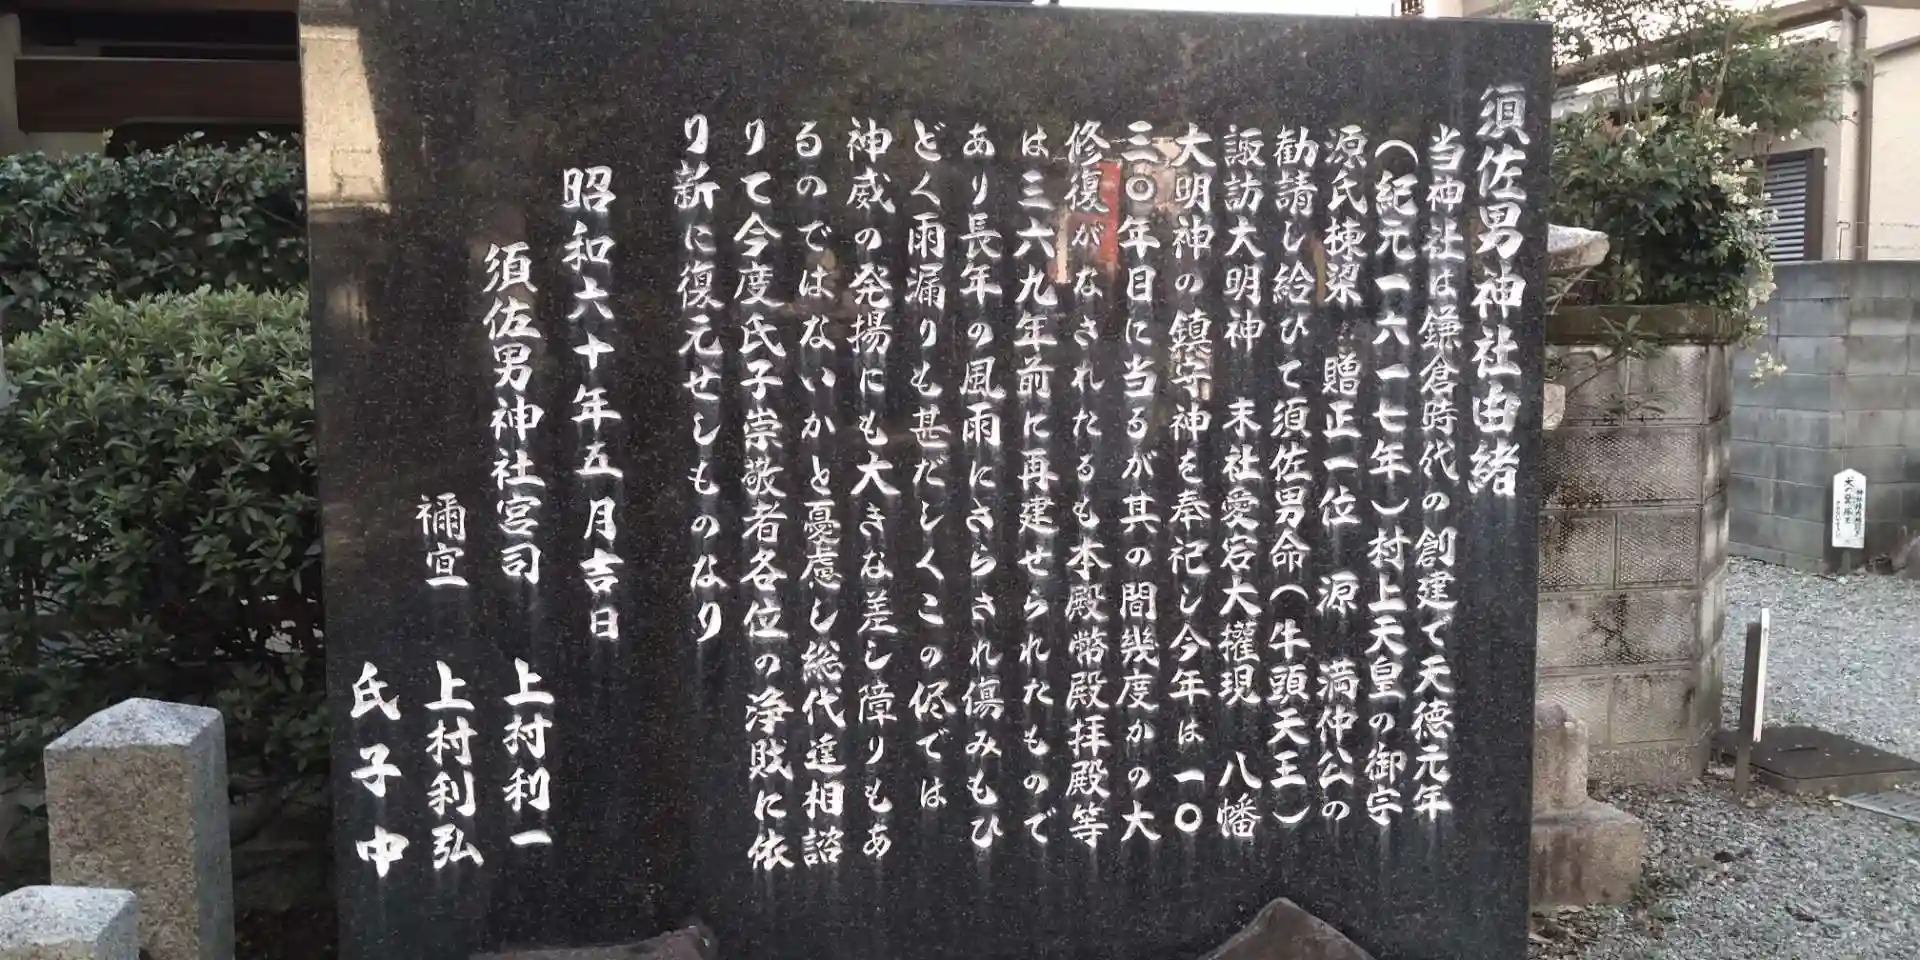 須佐男神社由緒
当神社は鎌倉時代の創建で天徳元年
(紀元一六一七年)村上天皇の御宇
源氏棟梁 贈正一位 源 満仲公の
勧請し給ひて須佐男命(牛頭天王)
諏訪大明神 末社愛宕大權現 八幡
大明神の鎮守神を奉祀し今年は一〇
三〇年目に当るが其の間幾度かの大
修復がなされたるも本殿幣殿拝殿等
は三六九年前に再建せられたもので
あり長年の風雨にさらされ傷みもひ
どく雨漏りも甚だしくこの侭では
神威の発揚にも大きな差し障りもあ
るのではないかと憂慮し総代達相諮
りて今度氏子崇敬者各位の浄財に依
り新に復元せしものなり
昭和六十年五月吉日
須佐男神社宮司 上村利一
禰宜 上村利弘
氏子中